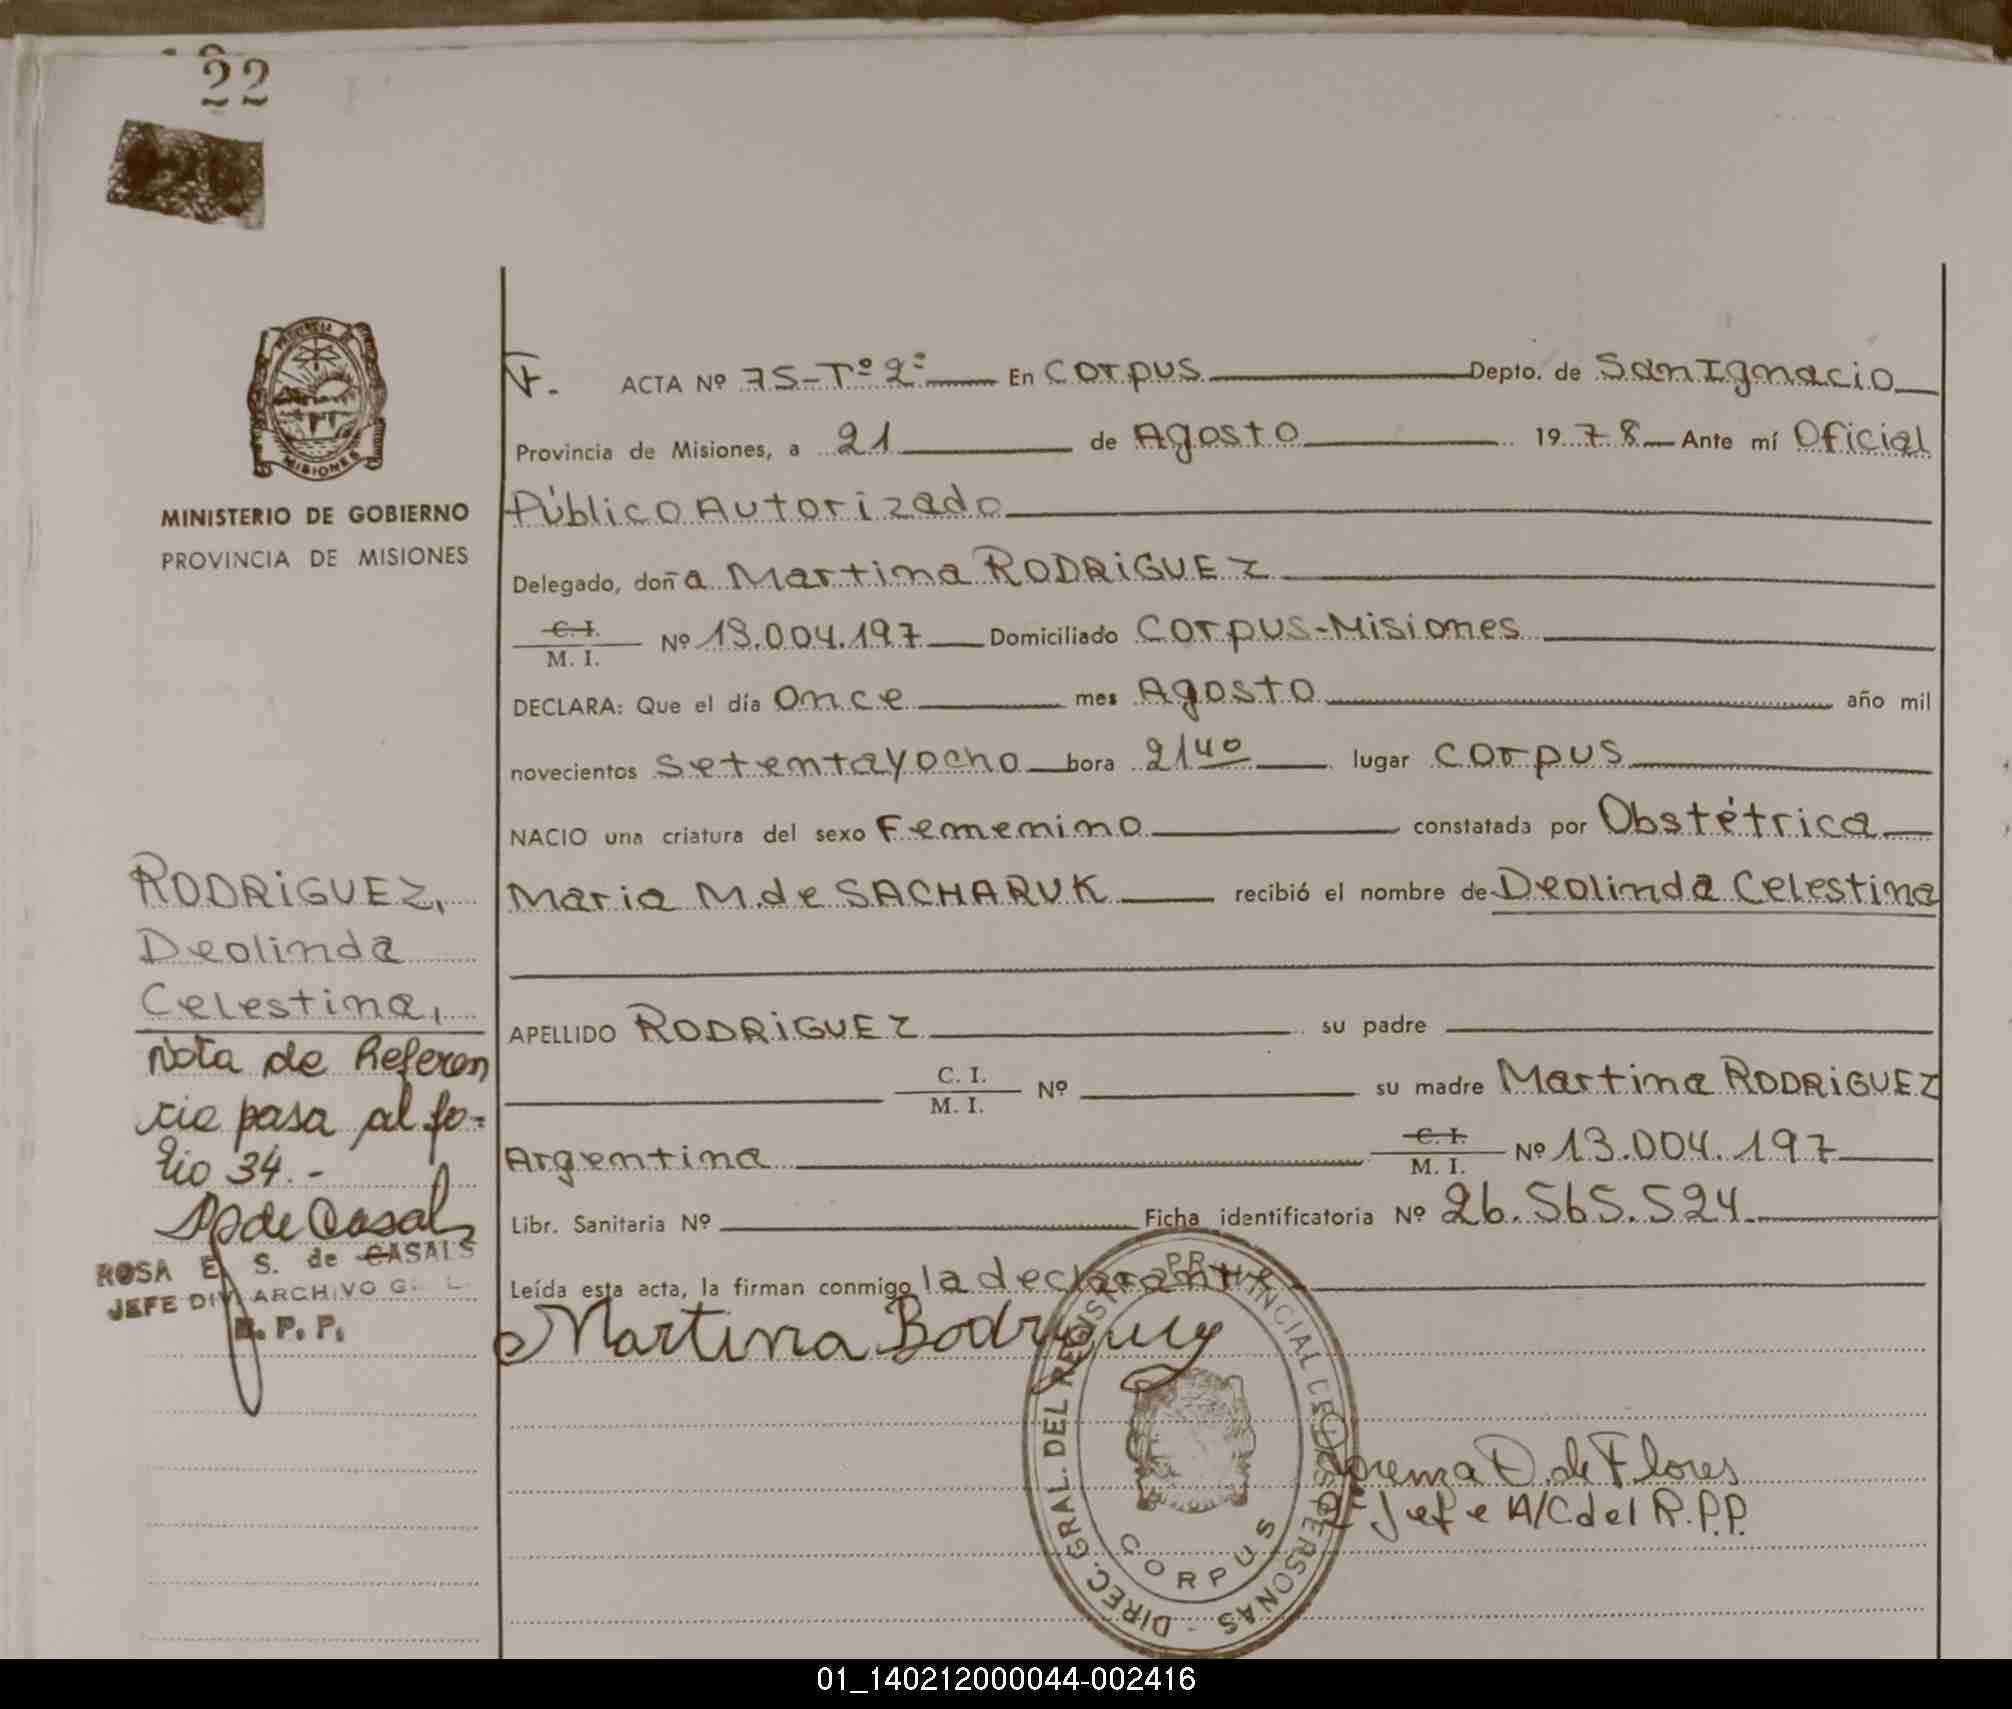 22
PROVINCIA
MISIONES
MINISTERIO DE GOBIERNO
PROVINCIA DE MISIONES
F. ACTA Nº 75-Tº2º En Corpus Depto. de San Ignacio
Provincia de Misiones, a 21 de Agosto 1978 Ante mí Oficial
Público Autorizado
Delegado, doña Martina RODRIGUEZ
C. I. / M. I. Nº 13.004.197 Domiciliado Corpus-Misiones
DECLARA: Que el día once mes Agosto año mil
novecientos setentayocho hora 21 40 lugar Corpus
NACIO una criatura del sexo Femenino constatada por Obstétrica
Maria M. de SACHARUK recibió el nombre de Deolinda Celestina
APELLIDO RODRIGUEZ su padre
C. I. / M. I. Nº su madre Martina RODRIGUEZ
Argentina C. I. / M. I. Nº 13.004.197
Libr. Sanitaria Nº Ficha identificatoria Nº 26.565.524
Leída esta acta, la firman conmigo la declarante
Martina Rodriguez
Lorenza D. de Flores
Jefe A/C del R.P.P.
DIREC. GRAL. DEL REGISTRO PROVINCIAL DE LAS PERSONAS -
CORPUS
RODRIGUEZ,
Deolinda
Celestina,
Nota de Referen
cia pasa al fo-
lio 34.-
de Casals
ROSA E. S. de CASALS
JEFE DIV. ARCHIVO G. L.
R. P. P.
01_140212000044-002416